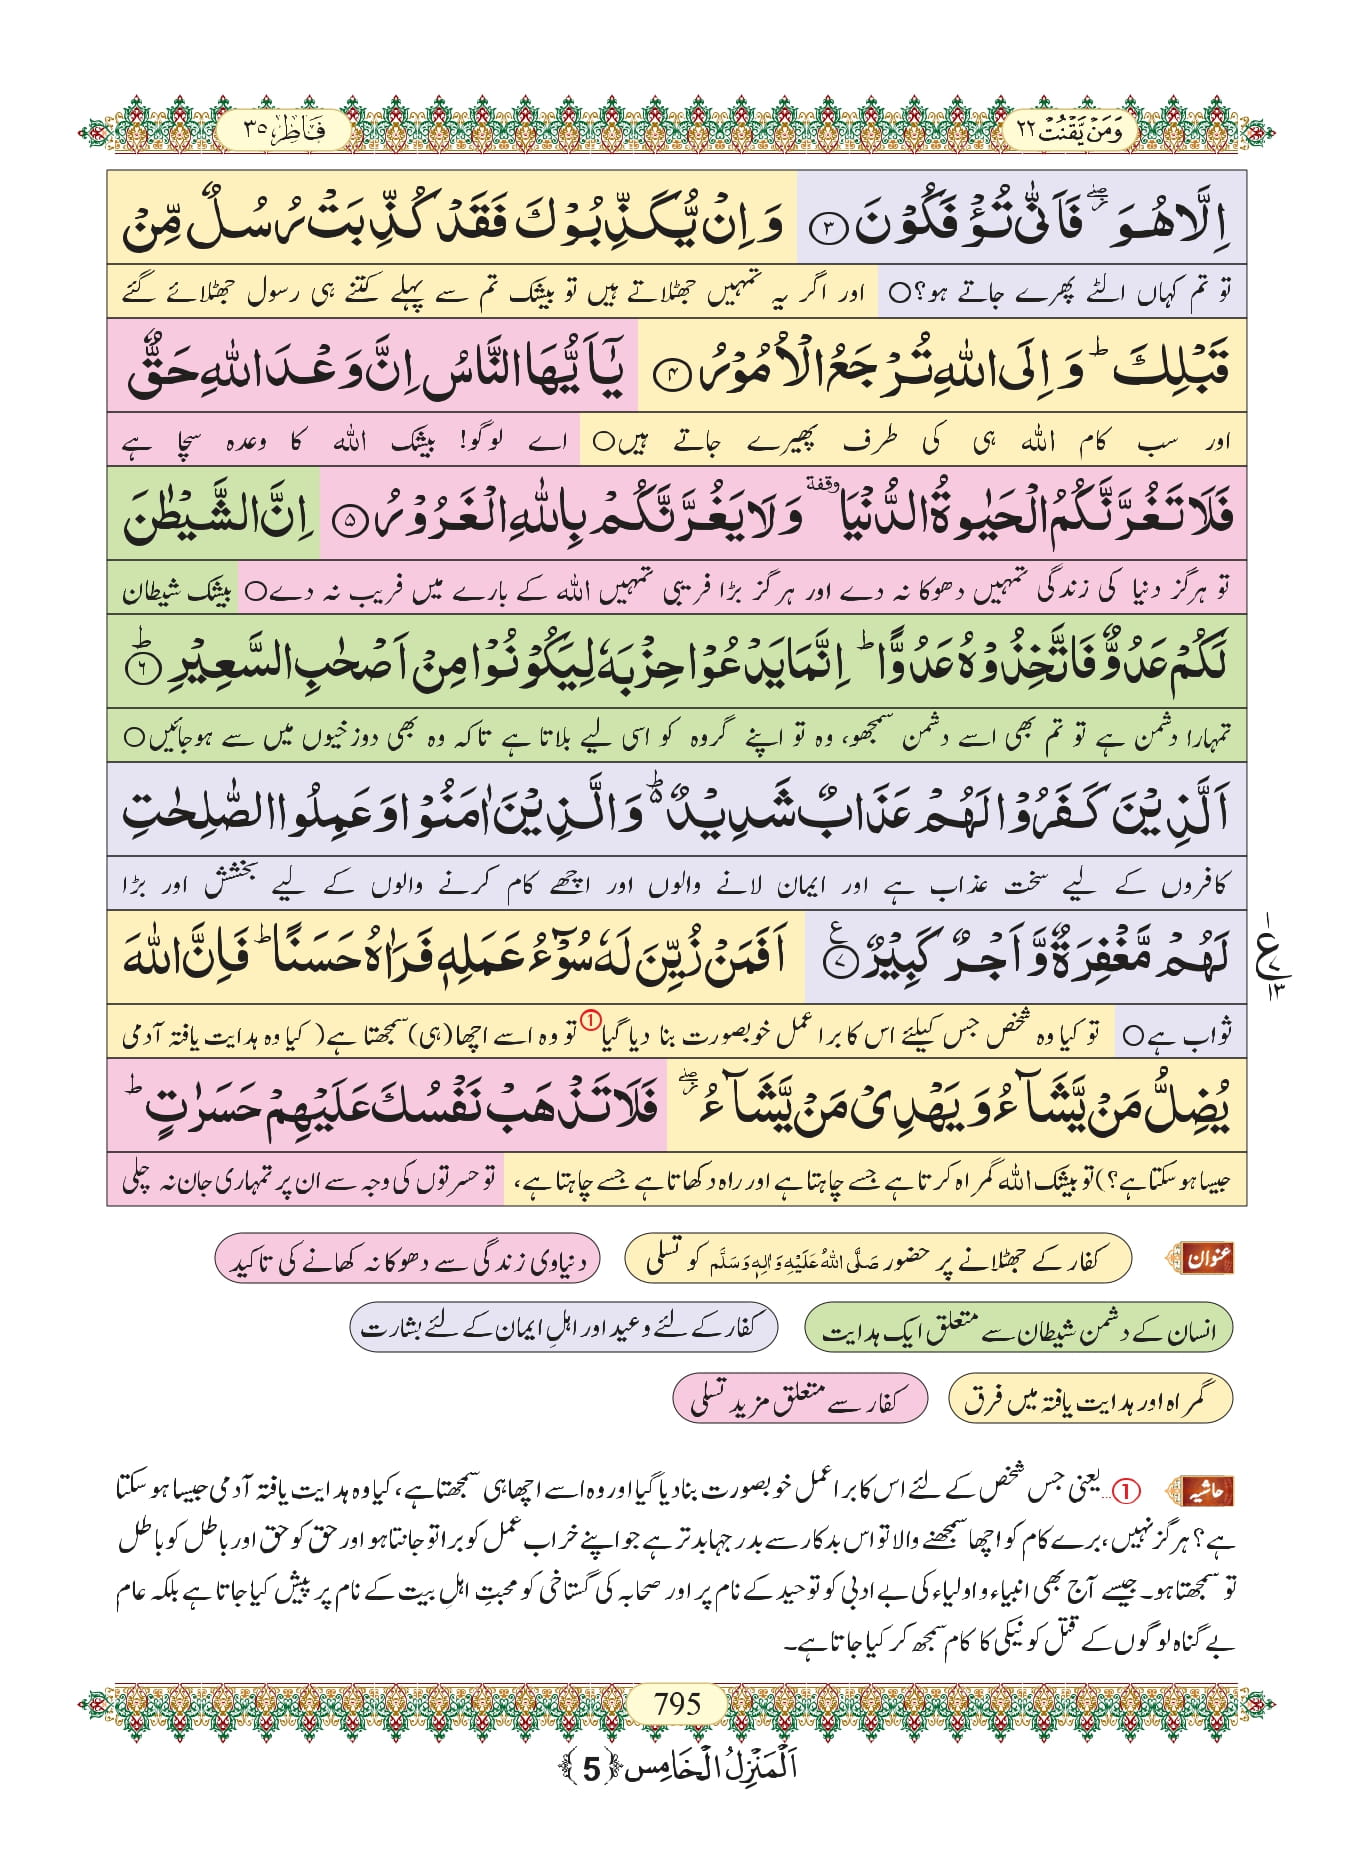 وَمَنْ يَّقْنُتْ ٢٢
فَاطِر ٣٥
اِلَّا هُوَ ۖ٘ فَاَنّٰى تُؤْفَكُوْنَ ﴿۳﴾ وَ اِنْ يُّكَذِّبُوْكَ فَقَدْ كُذِّبَتْ رُسُلٌ مِّنْ
تو تم کہاں الٹے پھرے جاتے ہو؟○ اور اگر یہ تمہیں جھٹلاتے ہیں تو بیشک تم سے پہلے کتنے ہی رسول جھٹلائے گئے
قَبْلِكَ ؕ وَ اِلَى اللّٰهِ تُرْجَعُ الْاُمُوْرُ ﴿۴﴾ يٰۤاَيُّهَا النَّاسُ اِنَّ وَعْدَ اللّٰهِ حَقٌّ
اور سب کام اللہ ہی کی طرف پھیرے جاتے ہیں○ اے لوگو! بیشک اللہ کا وعدہ سچا ہے
فَلَا تَغُرَّنَّكُمُ الْحَيٰوةُ الدُّنْيَا ٝ وقفة وَ لَا يَغُرَّنَّكُمْ بِاللّٰهِ الْغَرُوْرُ ﴿۵﴾ اِنَّ الشَّيْطٰنَ
تو ہرگز دنیا کی زندگی تمہیں دھوکا نہ دے اور ہرگز بڑا فریبی تمہیں اللہ کے بارے میں فریب نہ دے○ بیشک شیطان
لَكُمْ عَدُوٌّ فَاتَّخِذُوْهُ عَدُوًّا ؕ اِنَّمَا يَدْعُوْا حِزْبَهٗ لِيَكُوْنُوْا مِنْ اَصْحٰبِ السَّعِيْرِ ﴿۶﴾ؕ
تمہارا دشمن ہے تو تم بھی اسے دشمن سمجھو، وہ تو اپنے گروہ کو اسی لیے بلاتا ہے تاکہ وہ بھی دوزخیوں میں سے ہوجائیں○
اَلَّذِيْنَ كَفَرُوْا لَهُمْ عَذَابٌ شَدِيْدٌ ۬ؕ وَ الَّذِيْنَ اٰمَنُوْا وَ عَمِلُوا الصّٰلِحٰتِ
کافروں کے لیے سخت عذاب ہے اور ایمان لانے والوں اور اچھے کام کرنے والوں کے لیے بخشش اور بڑا
لَهُمْ مَّغْفِرَةٌ وَّ اَجْرٌ كَبِيْرٌ ﴿۷﴾ۧ اَفَمَنْ زُيِّنَ لَهٗ سُوْٓءُ عَمَلِهٖ فَرَاٰهُ حَسَنًا ؕ فَاِنَّ اللّٰهَ
١ ع ٧ ١٣
ثواب ہے○ تو کیا وہ شخص جس کیلئے اس کا برا عمل خوبصورت بنا دیا گیا① تو وہ اسے اچھا(ہی) سمجھتا ہے( کیا وہ ہدایت یافتہ آدمی
يُضِلُّ مَنْ يَّشَآءُ وَ يَهْدِيْ مَنْ يَّشَآءُ ۖ٘ فَلَا تَذْهَبْ نَفْسُكَ عَلَيْهِمْ حَسَرٰتٍ ؕ
جیسا ہوسکتا ہے؟) تو بیشک اللہ گمراہ کرتا ہے جسے چاہتا ہے اور راہ دکھاتا ہے جسے چاہتا ہے، تو حسرتوں کی وجہ سے ان پر تمہاری جان نہ چلی
عنوان کفار کے جھٹلانے پر حضور صَلَّی اللہُ عَلَیْہِ وَاٰلِہٖ وَسَلَّم کو تسلی دنیاوی زندگی سے دھوکا نہ کھانے کی تاکید
انسان کے دشمن شیطان سے متعلق ایک ہدایت کفار کے لئے وعید اور اہلِ ایمان کے لئے بشارت
گمراہ اور ہدایت یافتہ میں فرق کفار سے متعلق مزید تسلی
حاشیہ ①... یعنی جس شخص کے لئے اس کا برا عمل خوبصورت بنادیا گیا اور وہ اسے اچھا ہی سمجھتا ہے، کیا وہ ہدایت یافتہ آدمی جیسا ہوسکتا
ہے؟ ہرگز نہیں، برے کام کو اچھا سمجھنے والا تو اس بدکار سے بدرجہا بدتر ہے جو اپنے خراب عمل کو برا تو جانتا ہو اور حق کو حق اور باطل کو باطل
تو سمجھتا ہو۔ جیسے آج بھی انبیاء و اولیاء کی بے ادبی کو توحید کے نام پر اور صحابہ کی گستاخی کو محبتِ اہلِ بیت کے نام پر پیش کیا جاتا ہے بلکہ عام
بے گناہ لوگوں کے قتل کو نیکی کا کام سمجھ کر کیا جاتا ہے۔
795
اَلْمَنْزِلُ الْخَامِس ﴿5﴾